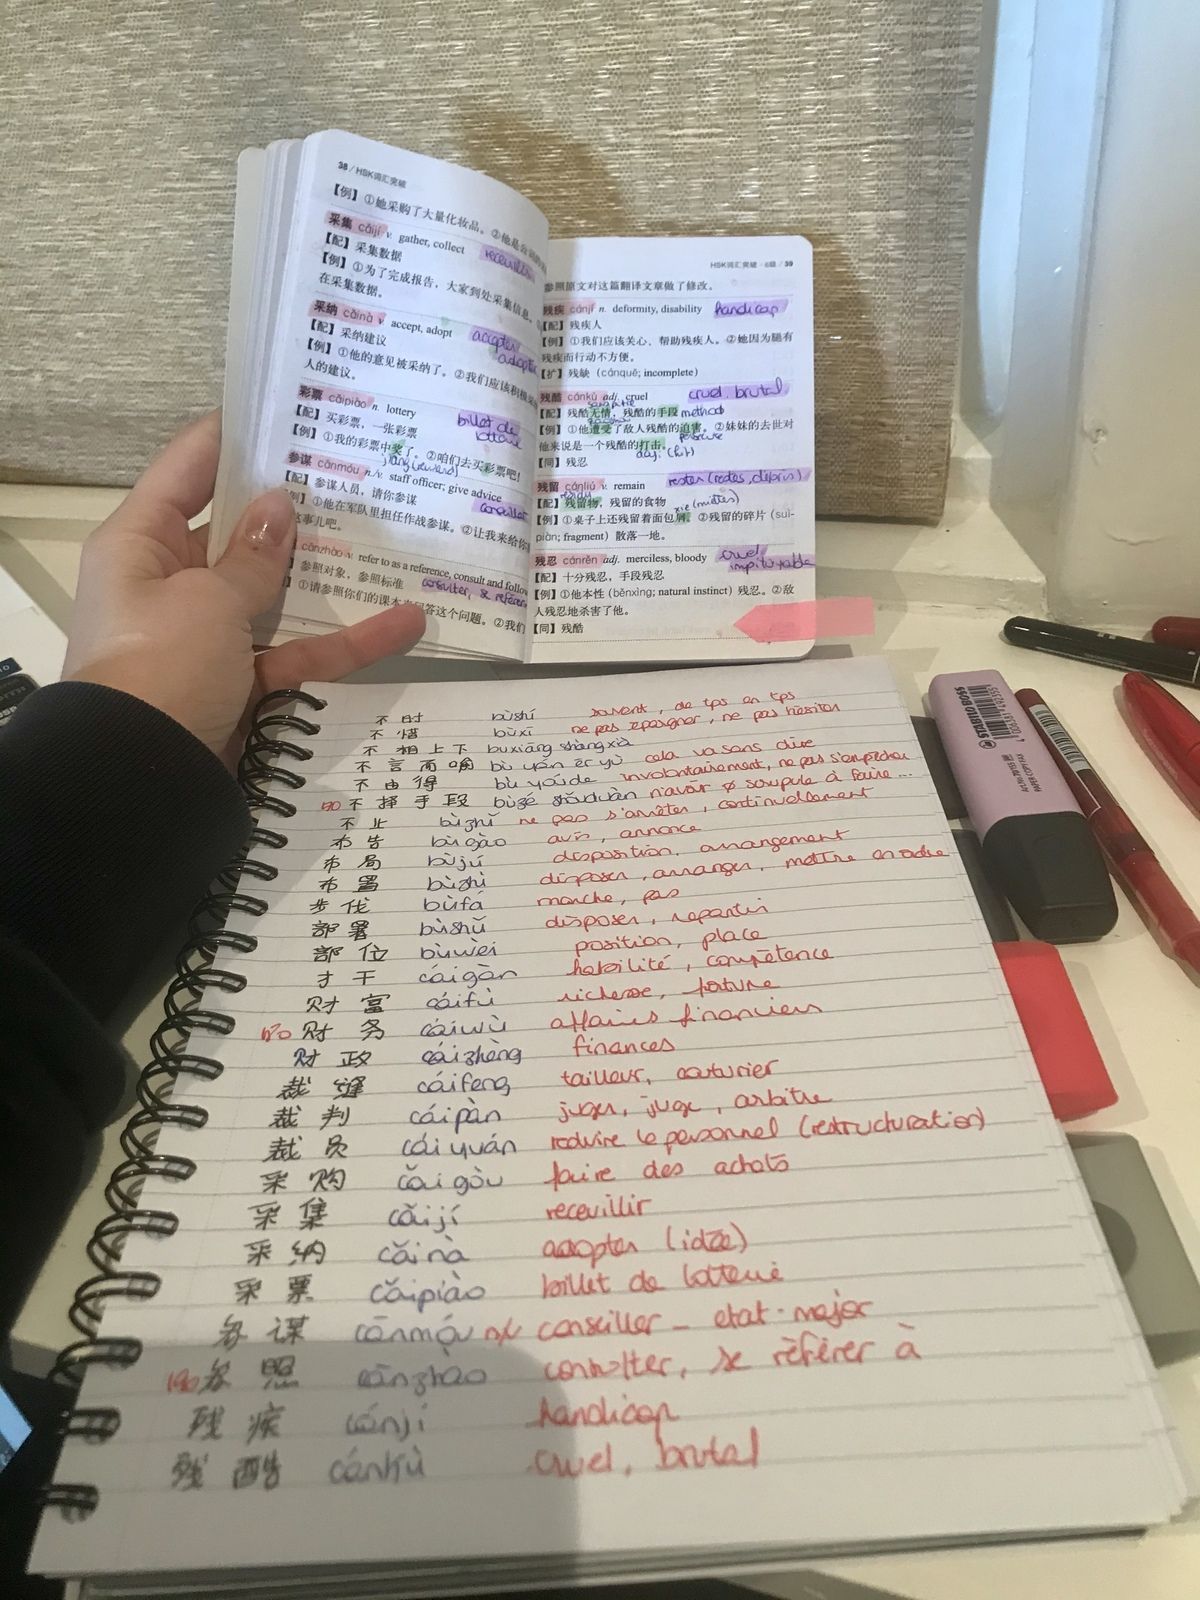 38 / HSK词汇突破
【例】①她采购了大量化妆品。②他是
采集 cǎijí v. gather, collect
【配】采集数据
【例】①为了完成报告，大家到处采集信息。
在采集数据。
采纳 cǎinà v. accept, adopt accepter
【配】采纳建议 adopter
【例】①他的意见被采纳了。②我们应该积极
人的建议。
彩票 cǎipiào n. lottery billet de
【配】买彩票，一张彩票 loterie
【例】①我的彩票中奖了。②咱们去买彩票吧！
jiǎng (reward)
参谋 cānmóu n./v. staff officer; give advice
【配】参谋人员，请你参谋 conseiller
例】①他在军队里担任作战参谋。②让我来给你
这事儿吧。
cānzhào v. refer to as a reference, consult and follow
参照对象，参照标准 consulter, se référer
①请参照你们的课本来回答这个问题。②我们
HSK词汇突破·6级 / 39
参照原文对这篇翻译文章做了修改。
残疾 cánjí n. deformity, disability handicap
【配】残疾人
【例】①我们应该关心、帮助残疾人。②她因为腿有
残疾而行动不方便。
【扩】残缺（cánquē; incomplete）
残酷 cánkù adj. cruel cruel, brutal
【配】残酷无情，残酷的手段 method
【例】①他遭受了敌人残酷的迫害。②妹妹的去世对
他来说是一个残酷的打击。
【同】残忍 dǎjī (hit)
残留 cánliú v. remain rester (restes, débris)
【配】残留物，残留的食物 xiè (miettes)
【例】①桌子上还残留着面包屑。②残留的碎片（suì-
piàn; fragment）散落一地。
残忍 cánrěn adj. merciless, bloody cruel,
【配】十分残忍，手段残忍 impitoyable
【例】①他本性（běnxìng; natural instinct）残忍。②敌
人残忍地杀害了他。
【同】残酷
不时 bùshí souvent, de tps en tps
不惜 bùxī ne pas épargner, ne pas hésiter
不相上下 bùxiāng shàngxià
不言而喻 bù yán ér yù cela va sans dire
不由得 bù yóude involontairement, ne pas s'empêcher
不择手段 bùzé shǒuduàn n'avoir ø scrupule à faire...
不止 bùzhǐ ne pas s'arrêter, continuellement
布告 bùgào avis, annonce
布局 bùjú disposition, arrangement
布置 bùzhì disposer, arranger, mettre en ordre
步伐 bùfá marche, pas
部署 bùshǔ disposer, repartir
部位 bùwèi position, place
才干 cáigàn habilité, compétence
财富 cáifù richesse, fortune
财务 cáiwù affaires financiers
财政 cáizhèng finances
裁缝 cáifeng tailleur, couturier
裁判 cáipàn juger, juge, arbitre
裁员 cáiyuán reduire le personnel (restructuration)
采购 cǎigòu faire des achats
采集 cǎijí receuillir
采纳 cǎinà accepter (idée)
采票 cǎipiào billet de lotterie
参谋 cānmóu n/v conseiller - etat-major
参照 cānzhào consulter, se référer à
残疾 cánjí handicap
残酷 cánkù cruel, brutal
STABILO BOSS